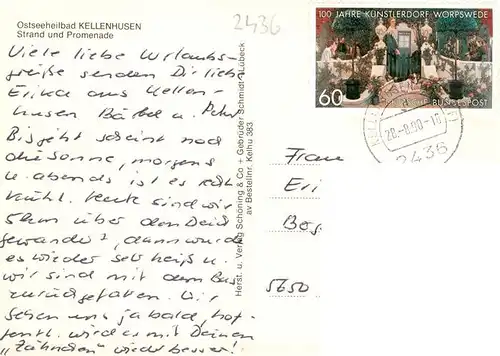 Ostseeheilbad KELLENHUSEN
Strand und Promenade
2436
Viele liebe Urlaubs-
grüße senden Dir liebe
Erika aus Kellen-
husen Bärbel u. Peter
Bisjetzt scheint noch
die Sonne, morgens
u. abends ist es recht
kühl. Heute sind wir
5km über den Deich
gewandert, dann wurde
es wieder sehr heiß u.
wir sind mit dem Bus
zurückgefahren. Wir
sehen uns ja bald, hof-
fentl. wird es mit Deinen
"Zähnchen" wieder besser!
Herst. u. Verlag Schöning & Co + Gebrüder Schmidt, Lübeck
av Bestellnr. Kelhu 383
100 JAHRE KÜNSTLERDORF WORPSWEDE
60
DEUTSCHE BUNDESPOST
28.-8.90-16
2436
Frau
Eri
Bog
5650